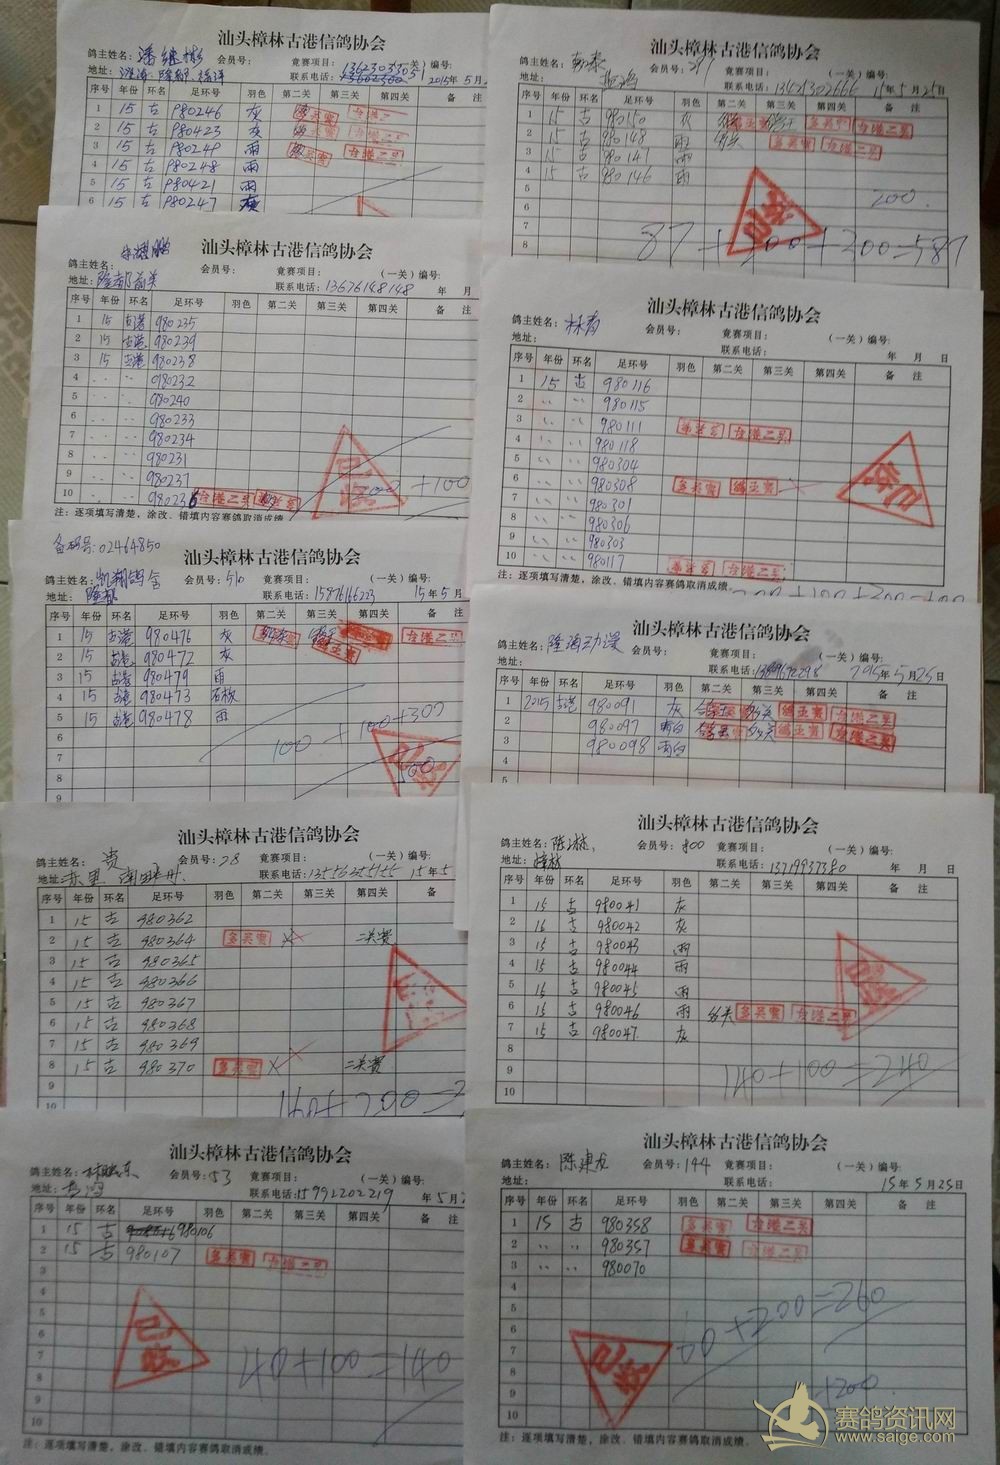 汕头樟林古港信鸽协会
鸽主姓名: 潘继彬 会员号: 竞赛项目: (一关)编号:
地址: 联系电话: 2015年5月2
序号 年份 环名 足环号 羽色 第二关 第三关 第四关 备 注
1 15 古 980246 灰
2 15 古 980423 灰
3 15 古 980249 雨
4 15 古 980248 雨
5 15 古 980421 雨
6 15 古 980247
汕头樟林古港信鸽协会
鸽主姓名: 会员号: 竞赛项目: (一关)编号:
地址: 联系电话: 13676148148 年 月
序号 年份 环名 足环号 羽色 第二关 第三关 第四关 备 注
1 15 古港 980235
2 15 古港 980239
3 15 古港 980238
4 980232
5 980240
6 980233
7 980234
8 980231
9 980237
10 980236 古港二关
200 +100
已收
注：逐项填写清楚，涂改、错填内容赛鸽取消成绩
备码号:02464850
汕头樟林古港信鸽协会
鸽主姓名: 凯翔鸽舍 会员号: 510 竞赛项目: (一关)编号:
地址: 隆都 联系电话: 15876166223 15年5月
序号 年份 环名 足环号 羽色 第二关 第三关 第四关 备 注
1 15 古港 980476 灰 鸽王赛 古港二关
2 15 古港 980472 灰
3 15 古港 980479 雨
4 15 古港 980473 石板
5 15 古港 980478 雨
6
7
8
9
100 + 100+300
500
汕头樟林古港信鸽协会
鸽主姓名: 贵 会员号: 28 竞赛项目: (一关)编号:
地址: 联系电话: 13556355155 15年5
序号 年份 环名 足环号 羽色 第二关 第三关 第四关 备
1 15 古 980362
2 15 古 980364 多关赛 二关赛
3 15 古 980365
4 15 古 980366
5 15 古 980367
6 15 古 980368
7 15 古 980369
8 15 古 980370 多关赛 二关赛
9
10
160+200=2
汕头樟林古港信鸽协会
鸽主姓名: 会员号: 53 竞赛项目: (一关)编号:
地址: 联系电话: 15992202219 年5月2
序号 年份 环名 足环号 羽色 第二关 第三关 第四关 备 注
1 15 古 980106
2 15 古 980107 多关赛 古港二关
3
4
5
6
7
8
9
10
已收
40+100=140
注：逐项填写清楚，涂改、错填内容赛鸽取消成绩。
汕头樟林古港信鸽协会
鸽主姓名: 会员号: 217 竞赛项目: (一关)编号:
地址: 联系电话: 13425302666 15年5月25日
序号 年份 环名 足环号 羽色 第二关 第三关 第四关 备 注
1 15 古 980150 灰 鸽王赛 多关赛 古港二关
2 15 古 980148 雨 多关赛 古港二关
3 15 古 980147 雨
4 15 古 980146 雨
5
6
7
8
200.
已收
87+200+300=587
汕头樟林古港信鸽协会
鸽主姓名: 会员号: 竞赛项目: (一关)编号:
地址: 联系电话: 年 月 日
序号 年份 环名 足环号 羽色 第二关 第三关 第四关 备 注
1 15 古 980116
2 980115
3 980111 多关赛 古港二关
4 980118
5 980304
6 980308 多关赛 鸽王赛
7 980301
8 980306
9 980303
10 980117 多关赛 古港二关
已收
注：逐项填写清楚，涂改、错填内容赛鸽取消成绩
汕头樟林古港信鸽协会
鸽主姓名: 会员号: 竞赛项目: (一关)编号:
地址: 联系电话: 年5月25日
序号 年份 环名 足环号 羽色 第二关 第三关 第四关 备 注
1 2015 古港 980091 灰 鸽王赛 古港二关
2 980097 雨白 鸽王赛 古港二关
3 980098 雨白
汕头樟林古港信鸽协会
鸽主姓名: 会员号: 800 竞赛项目: (一关)编号:
地址: 樟林 联系电话: 13719937380 年 月 日
序号 年份 环名 足环号 羽色 第二关 第三关 第四关 备 注
1 15 古 980041 灰
2 15 古 980042 灰
3 15 古 980043 雨
4 15 古 980044 雨
5 15 古 980045 雨
6 15 古 980046 雨 多关 多关赛 古港二关
7 15 古 980047 灰
8
9
10
140+100=240
汕头樟林古港信鸽协会
鸽主姓名: 陈建龙 会员号: 144 竞赛项目: (一关)编号:
地址: 联系电话: 15年5月25日
序号 年份 环名 足环号 羽色 第二关 第三关 第四关 备 注
1 15 古 980358 多关赛 古港二关
2 980357 多关赛 古港二关
3 980070
4
5
6
7
8
9
10
60+200=260
+200
已收
注：逐项填写清楚，涂改、错填内容赛鸽取消成绩
赛鸽资讯网
www.saige.com